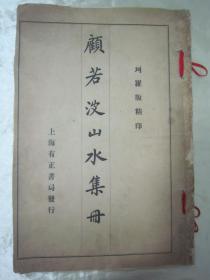 珂羅版精印
顧若波山水集冊
上海有正書局發行